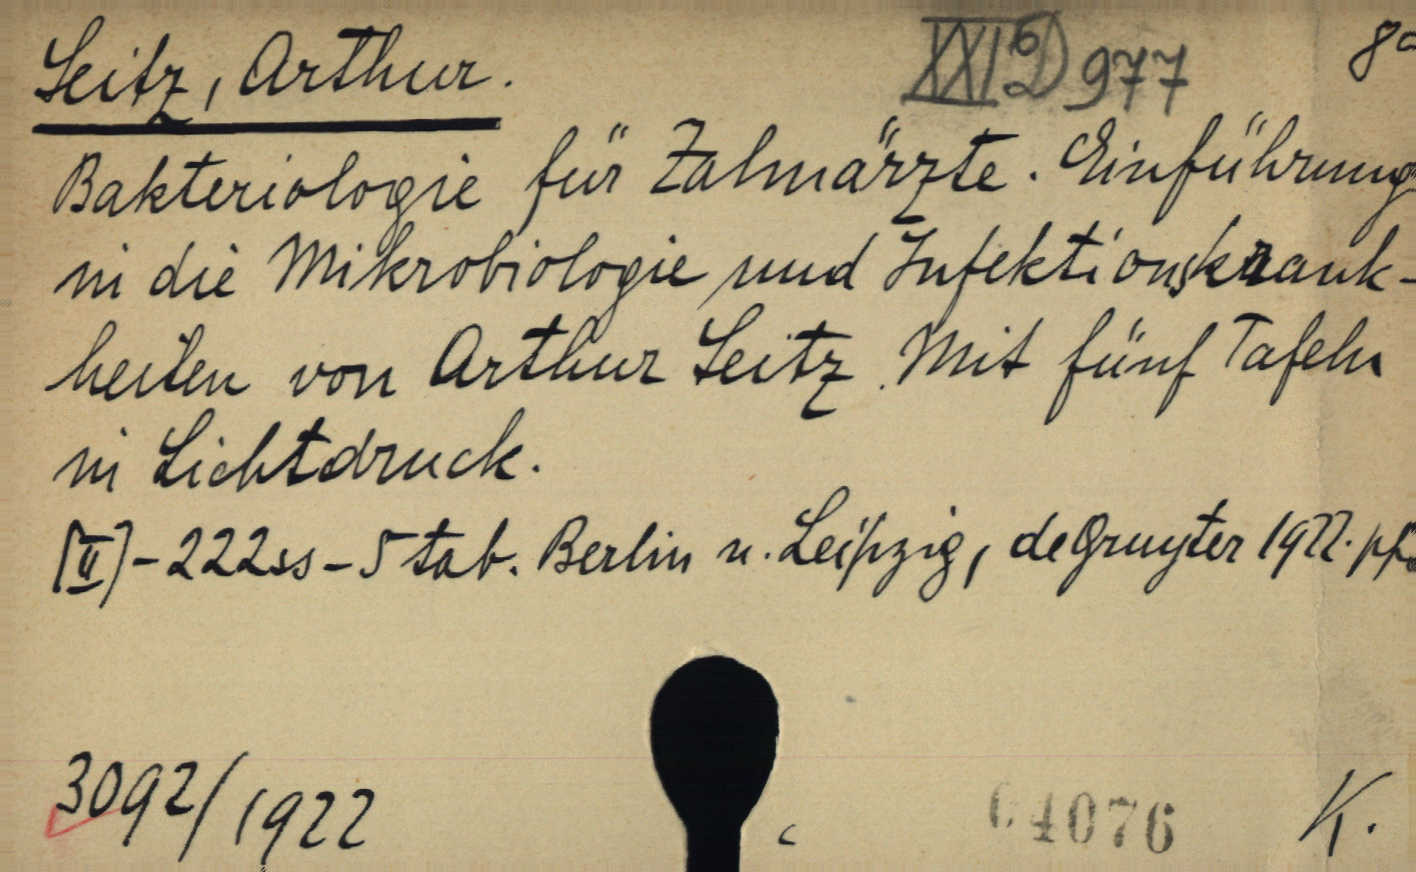 Seitz, Arthur. XXI b D 977 8°
Bakteriologie für Zahnärzte. Einführung
in die Mikrobiologie und Infektionskrank-
heiten von Arthur Seitz. Mit fünf Tafeln
in Lichtdruck.
[II]-222ss-5 tab. Berlin u. Leipzig, de Gruyter 1922.
3092/1922 c 64076 K.